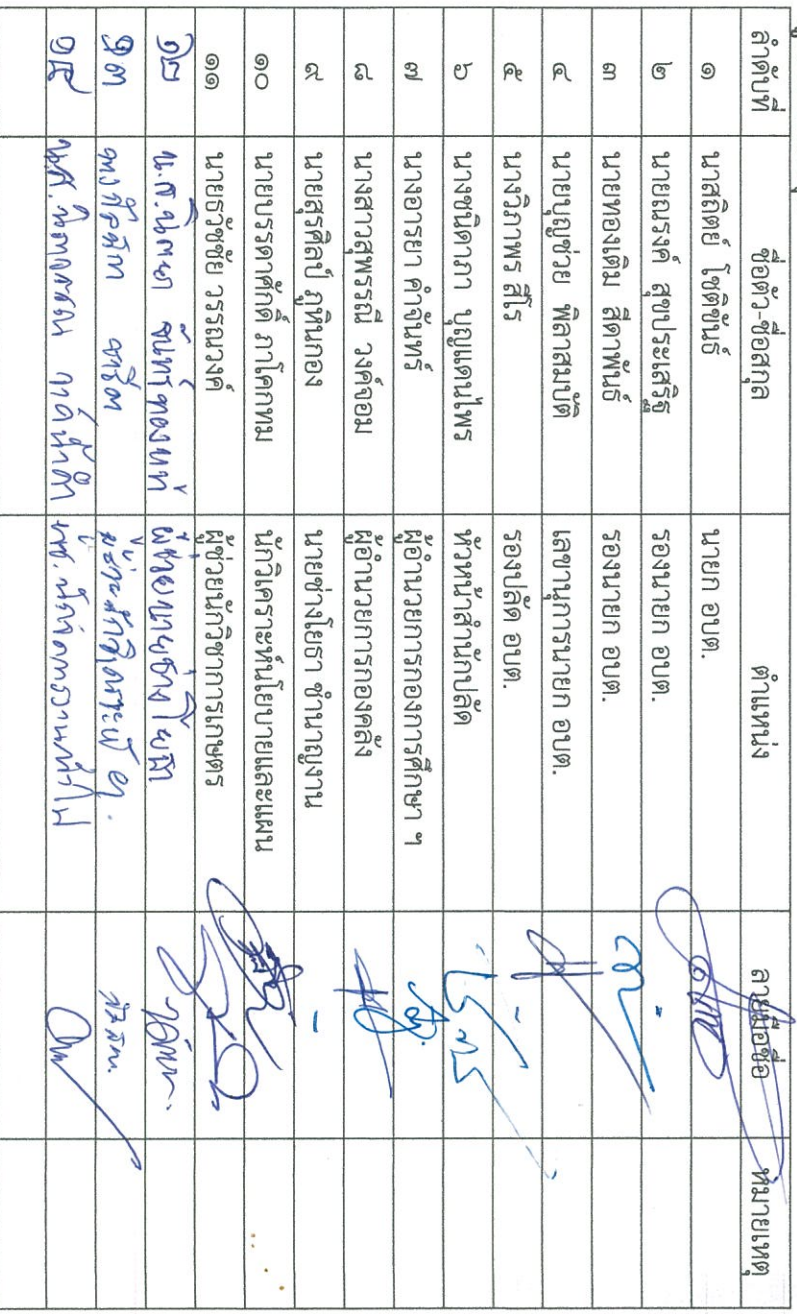 ลำดับที่ ชื่อตัว-ชื่อสกุล ตำแหน่ง ลายมือชื่อ หมายเหตุ
๑ นาสถิตย์ โชติขันธ์ นายก อบต.
๒ นายณรงค์ สุขประเสริฐ รองนายก อบต.
๓ นายทองเติม สีดาพันธ์ รองนายก อบต.
๔ นายบุญช่วย พิลาสมบัติ เลขานุการนายก อบต.
๕ นางวิภาพร สีโร รองปลัด อบต. -
๖ นางชนิดาภา บุญแดนไพร หัวหน้าสำนักปลัด
๗ นางอารยา คำจันทร์ ผู้อำนวยการกองการศึกษา ฯ
๘ นางสาวสุพรรณี วงค์จอม ผู้อำนวยการกองคลัง
๙ นายสุรศิลป์ ภูหินกอง นายช่างโยธา ชำนาญงาน -
๑๐ นายบรรดาศักดิ์ ภาโคกทม นักวิเคราะห์นโยบายและแผน
๑๑ นายธวัชชัย วรรณวงค์ ผู้ช่วยนักวิชาการเกษตร
๑๒ น.ส.นิตยา จันทร์ทองแท้ ผู้ช่วยนายช่างโยธา
๑๓
๑๔ น.ส.